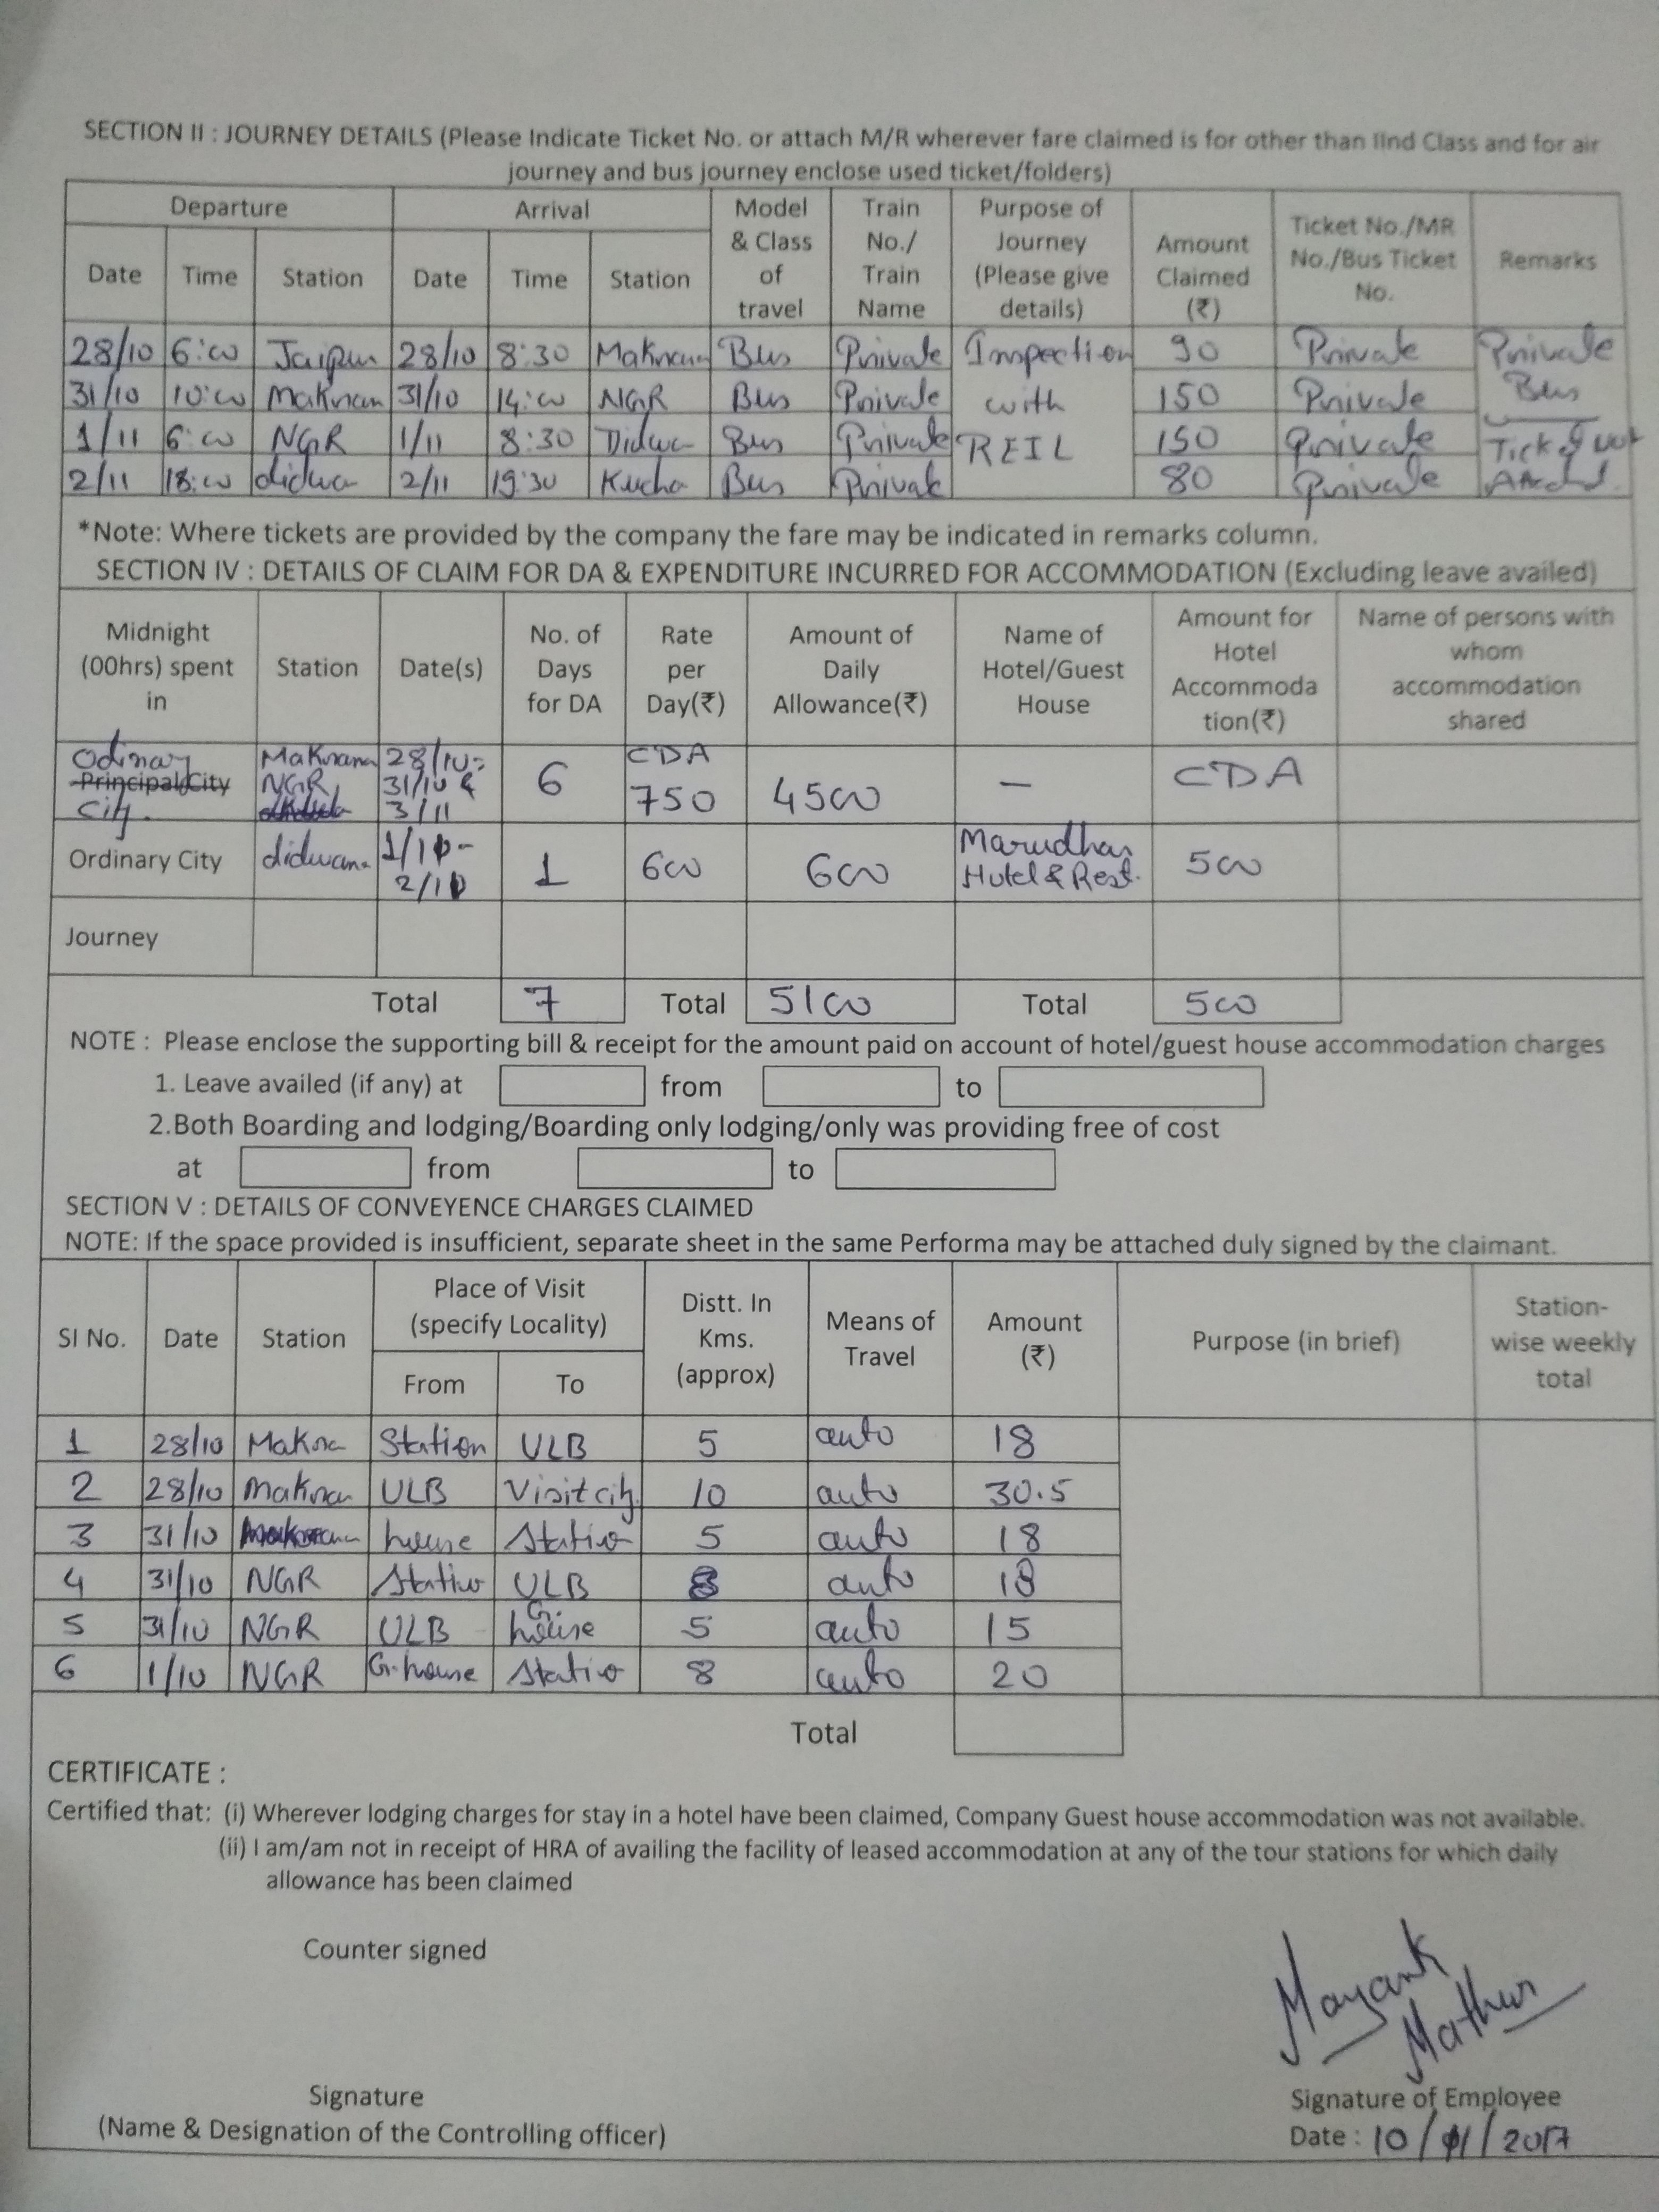 SECTION II : JOURNEY DETAILS (Please Indicate Ticket No. or attach M/R wherever fare claimed is for other than IInd Class and for air
journey and bus journey enclose used ticket/folders)
Departure Arrival Model & Class of travel Train No./ Train Name Purpose of Journey (Please give details) Amount Claimed (₹) Ticket No./MR No./Bus Ticket No. Remarks
Date Time Station Date Time Station
28/10 6:00 Jaipur 28/10 8:30 Makrana Bus Private Inspection 90 Private Private
31/10 10:00 Makran 31/10 14:00 NGR Bus Private with 150 Private Bus
1/11 6:00 NGR 1/11 8:30 Didwa Bus Private REIL 150 Private Ticket not
2/11 18:00 didwa 2/11 19:30 Kucha Bus Privat 80 Private
*Note: Where tickets are provided by the company the fare may be indicated in remarks column.
SECTION IV : DETAILS OF CLAIM FOR DA & EXPENDITURE INCURRED FOR ACCOMMODATION (Excluding leave availed)
Midnight (00hrs) spent in Station Date(s) No. of Days for DA Rate per Day(₹) Amount of Daily Allowance(₹) Name of Hotel/Guest House Amount for Hotel Accommoda tion(₹) Name of persons with whom accommodation shared
Odinary Makrana 28/10- CDA
Principal City NGR 31/10 & 6 750 4500 — CDA
City. 3/11
Ordinary City didwana 1/11- 2/11 1 600 600 Marudhar Hotel & Rest. 500
Journey
Total 7 Total 5100 Total 500
NOTE : Please enclose the supporting bill & receipt for the amount paid on account of hotel/guest house accommodation charges
1. Leave availed (if any) at from to
2.Both Boarding and lodging/Boarding only lodging/only was providing free of cost
at from to
SECTION V : DETAILS OF CONVEYENCE CHARGES CLAIMED
NOTE: If the space provided is insufficient, separate sheet in the same Performa may be attached duly signed by the claimant.
SI No. Date Station Place of Visit (specify Locality) Distt. In Kms. (approx) Means of Travel Amount (₹) Purpose (in brief) Station-wise weekly total
From To
1 28/10 Makra Station ULB 5 auto 18
2 28/10 Makran ULB Visit city. 10 auto 30.5
3 31/10 house Statio 5 auto 18
4 31/10 NGR Statio ULB 8 auto 18
5 31/10 NGR ULB G. house 5 auto 15
6 1/10 NGR G. house Statio 8 auto 20
Total
CERTIFICATE :
Certified that: (i) Wherever lodging charges for stay in a hotel have been claimed, Company Guest house accommodation was not available.
(ii) I am/am not in receipt of HRA of availing the facility of leased accommodation at any of the tour stations for which daily
allowance has been claimed
Counter signed
Mayank
Mathur
Signature Signature of Employee
(Name & Designation of the Controlling officer) Date : 10/11/2017